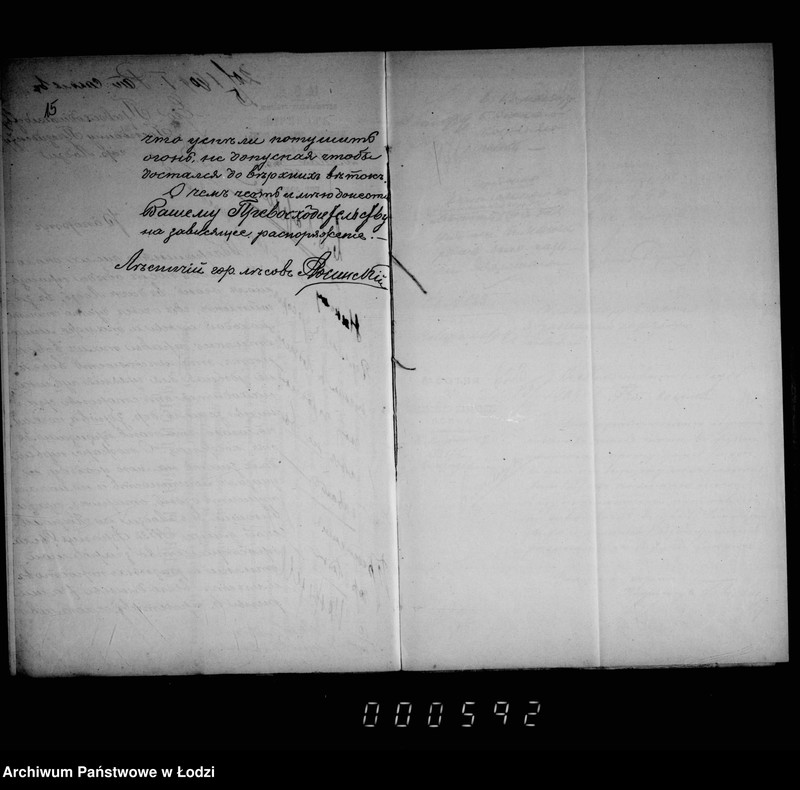 15
что успѣли потушить
огонь, не допуская чтобы
достался до верхнихъ вѣтокъ.
О чемъ честь имѣю донести
Вашему Превосходительству
на зависящее распоряженіе.—
Лѣсничій гор. лѣсовъ
000592
Archiwum Państwowe w Łodzi